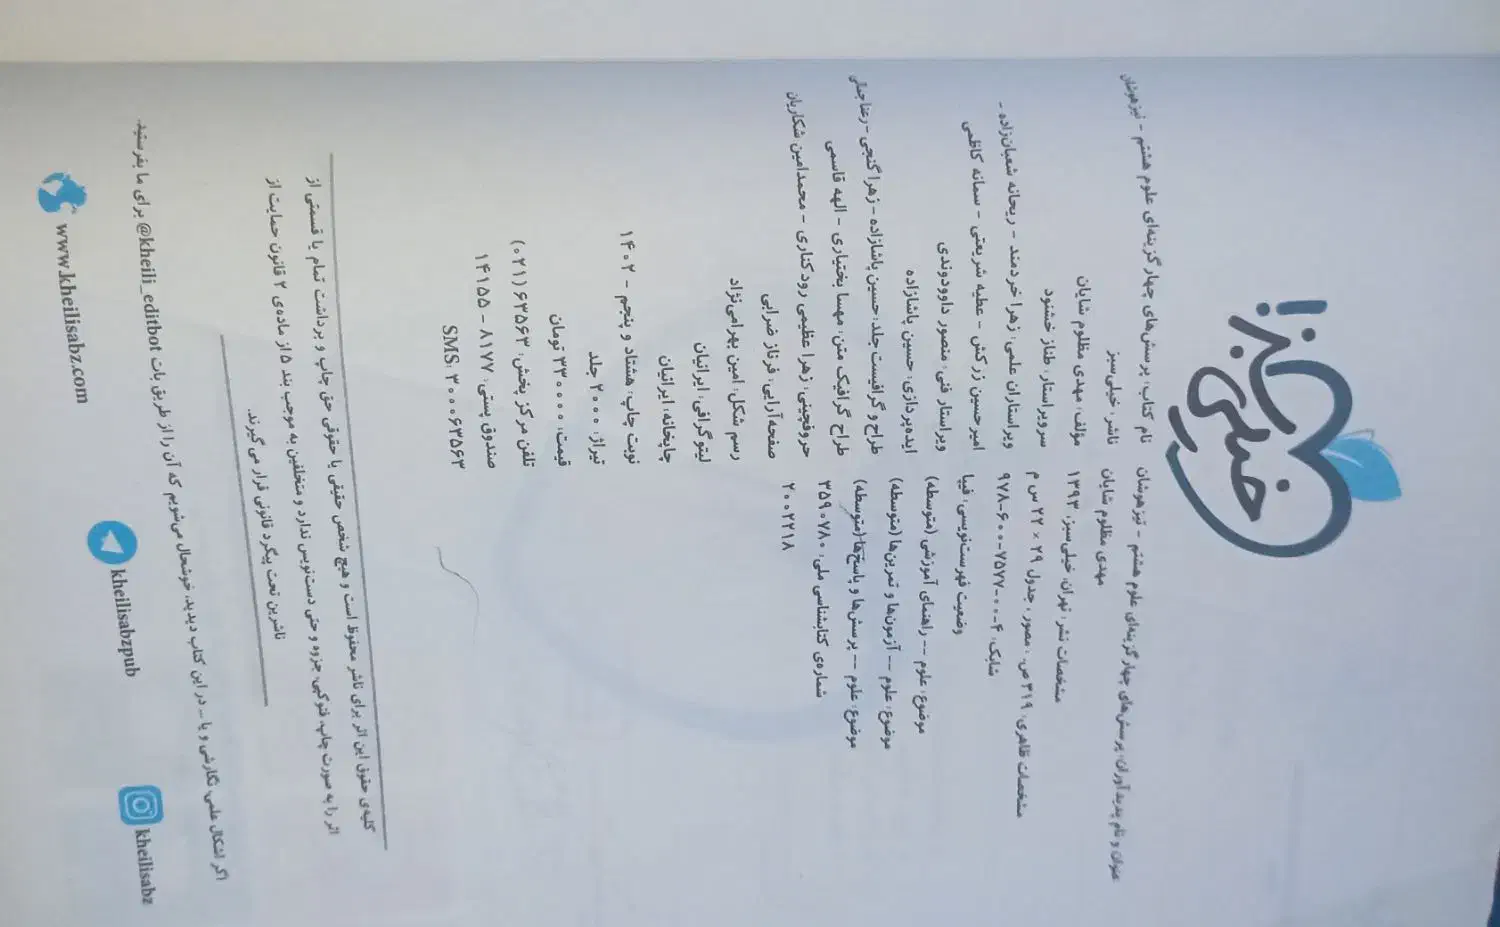 خیلی سبز
نام کتاب: پرسش‌های چهارگزینه‌ای علوم هشتم - تیزهوشان
ناشر: خیلی‌سبز
مؤلف: مهدی مظلوم شایان
سرویراستار: طناز خشنود
ویراستاران علمی: زهرا خردمند - ریحانه شعبان‌زاده -
امیرحسین زرکش - عطیه شریعتی - سمانه کاظمی
ویراستار فنی: منصور داوودوندی
ایده‌پردازی: حسین پاشازاده
طراح و گرافیست جلد: حسین پاشازاده - زهرا گنجی - رعنا جمالی
طراح گرافیک متن: مهسا بختیاری - الهه قاسمی
حروفچینی: زهرا عظیمی رودکناری - محمدامین شکاریان
صفحه‌آرایی: فرناز ضرابی
رسم شکل: امین بهرامی‌نژاد
لیتوگرافی: ایرانیان
چاپخانه: ایرانیان
نوبت چاپ: هشتاد و پنجم - ۱۴۰۲
تیراژ: ۲۰۰۰ جلد
قیمت: ۳۳۰۰۰۰ تومان
تلفن مرکز پخش: ۶۳۵۶۳ (۰۲۱)
صندوق پستی: ۸۱۷۷ - ۱۴۱۵۵
SMS: ۳۰۰۰۶۳۵۶۳
عنوان و نام پدیدآوران: پرسش‌های چهارگزینه‌ای علوم هشتم - تیزهوشان
مهدی مظلوم شایان
مشخصات نشر: تهران، خیلی‌سبز، ۱۳۹۳
مشخصات ظاهری: ۳۱۹ ص. ، مصور، جدول ۲۹ × ۲۲ س م
شابک: ۴-۰۰-۷۵۷۷-۶۰۰-۹۷۸
وضعیت فهرست‌نویسی: فیپا
موضوع: علوم -- راهنمای آموزشی (متوسطه)
موضوع: علوم -- آزمون‌ها و تمرین‌ها (متوسطه)
موضوع: علوم -- پرسش‌ها و پاسخ‌ها (متوسطه)
شماره‌ی کتابشناسی ملی: ۳۵۹۰۷۸۰
۲۰۰۲۲۱۸
کلیه‌ی حقوق این اثر برای ناشر محفوظ است و هیچ شخص حقیقی یا حقوقی حق چاپ و برداشت تمام یا قسمتی از
اثر را به صورت چاپ، فتوکپی، جزوه و حتی دست‌نویس ندارد و متخلفین به موجب بند ۵ از ماده‌ی ۲ قانون حمایت از
ناشرین تحت پیگرد قانونی قرار می‌گیرند.
اگر اشکال علمی، نگارشی و یا ... در این کتاب دیدید، خوشحال می‌شویم که آن را از طریق بات @kheili_editbot برای ما بفرستید.
www.kheilisabz.com
kheilisabzpub
kheilisabz